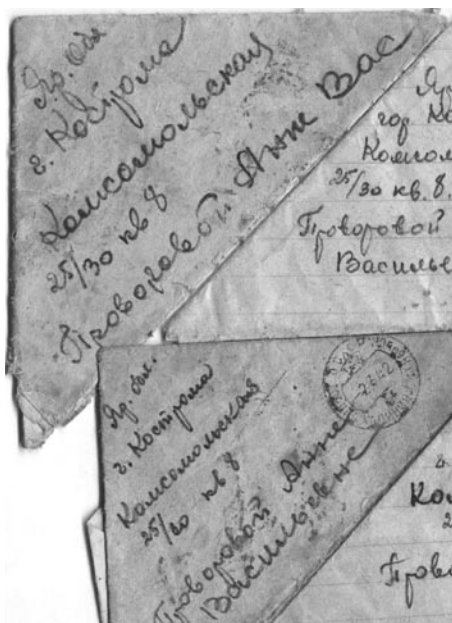 Яр. Обл
г. Кострома
Комсомольская
25/30 кв 8
Проворовой Анне Вас
Яр
гор Ко
Комсом
25/30 кв. 8.
Проворовой
Василье
Яр. обл.
г. Кострома
Комсомольская
25/30 кв 8
Проворовой Анне
Васильевне
г
Ком
2
Прово